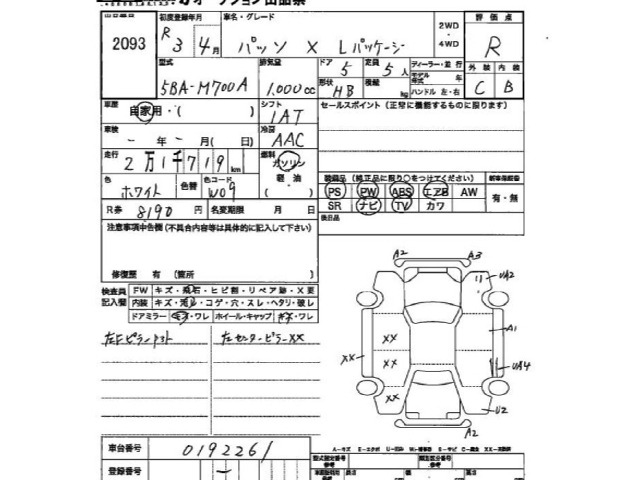 オークション出品票
出品番号 初度登録年月 車名・グレード 2WD ・ 4WD 評価点
2093 R 3年 4月 パッソ X Lパッケージ R
型式 排気量 ドア 定員 ディーラー・並行 外装 内装
5BA-M700A 1,000cc 5 5人 モデル年式 年 C B
形状 HB 積載 kg ハンドル 左・右
車歴 自家用・( ) シフト IAT セールスポイント(正常に機能するものに限ります)
車検 - 年 - 月( 日) 冷房 AAC
走行 2万1千719km 燃料 ガソリン 軽油
装備品(純正品に限り○をつけてください) 新車保証書
色 ホワイト 色替 色コード W09 PS PW ABS エアB AW 有・無
SR ナビ TV カワ
R券 8190円 名変期限 月 日 後日品
注意事項申告欄(不具合内容等は具体的に記入して下さい)
修復歴 有 (箇所 )
検査員記入欄 FW キズ・飛石・ヒビ割・リペア跡・X要
内装 キズ・汚れ・コゲ・穴・スレ・ヘタリ・破レ
ドアミラー キズ・ワレ ホイール・キャップ キズ・ワレ
左センターピラーXX
A2 A3
UA2
A1
XX XX
XX
UA4
XX
U2
A2
車台番号 0192261
登録番号 -